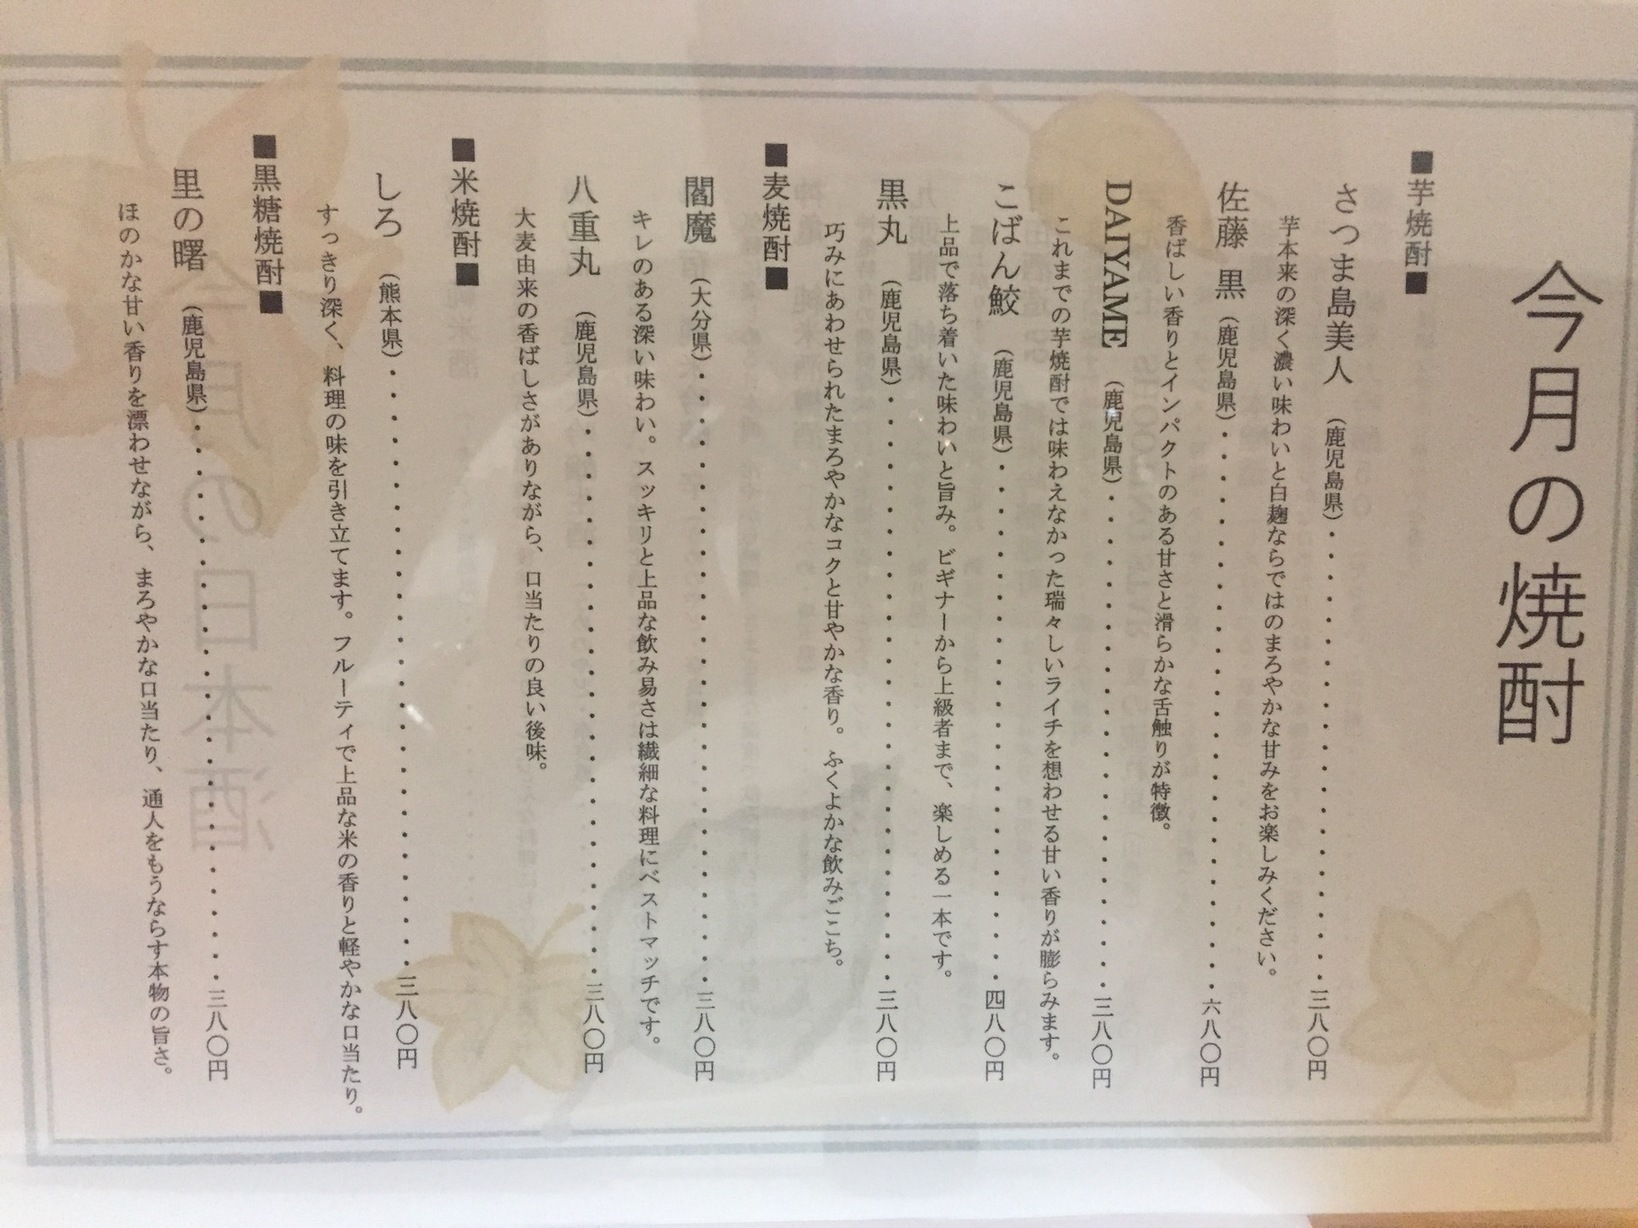 今月の焼酎
■芋焼酎■
さつま島美人 (鹿児島県)・・・・・・・・・・・・・・・・・・・・・三八〇円
芋本来の深く濃い味わいと白麹ならではのまろやかな甘みをお楽しみください。
佐藤 黒 (鹿児島県)・・・・・・・・・・・・・・・・・・・・・・・・・六八〇円
香ばしい香りとインパクトのある甘さと滑らかな舌触りが特徴。
DAIYAME (鹿児島県)・・・・・・・・・・・・・・・・・・・・・・三八〇円
これまでの芋焼酎では味わえなかった瑞々しいライチを想わせる甘い香りが膨らみます。
こばん鮫 (鹿児島県)・・・・・・・・・・・・・・・・・・・・・・・四八〇円
上品で落ち着いた味わいと旨み。ビギナーから上級者まで、楽しめる一本です。
黒丸 (鹿児島県)・・・・・・・・・・・・・・・・・・・・・・・・・・三八〇円
巧みにあわせられたまろやかなコクと甘やかな香り。ふくよかな飲みごこち。
■麦焼酎■
閻魔 (大分県)・・・・・・・・・・・・・・・・・・・・・・・・・・・三八〇円
キレのある深い味わい。スッキリと上品な飲み易さは繊細な料理にベストマッチです。
八重丸 (鹿児島県)・・・・・・・・・・・・・・・・・・・・・・・・・三八〇円
大麦由来の香ばしさがありながら、口当たりの良い後味。
■米焼酎■
しろ (熊本県)・・・・・・・・・・・・・・・・・・・・・・・・・・・三八〇円
すっきり深く、料理の味を引き立てます。フルーティで上品な米の香りと軽やかな口当たり。
■黒糖焼酎■
里の曙 (鹿児島県)・・・・・・・・・・・・・・・・・・・・・・・・・三八〇円
ほのかな甘い香りを漂わせながら、まろやかな口当たり、通人をもうならす本物の旨さ。
今月の日本酒